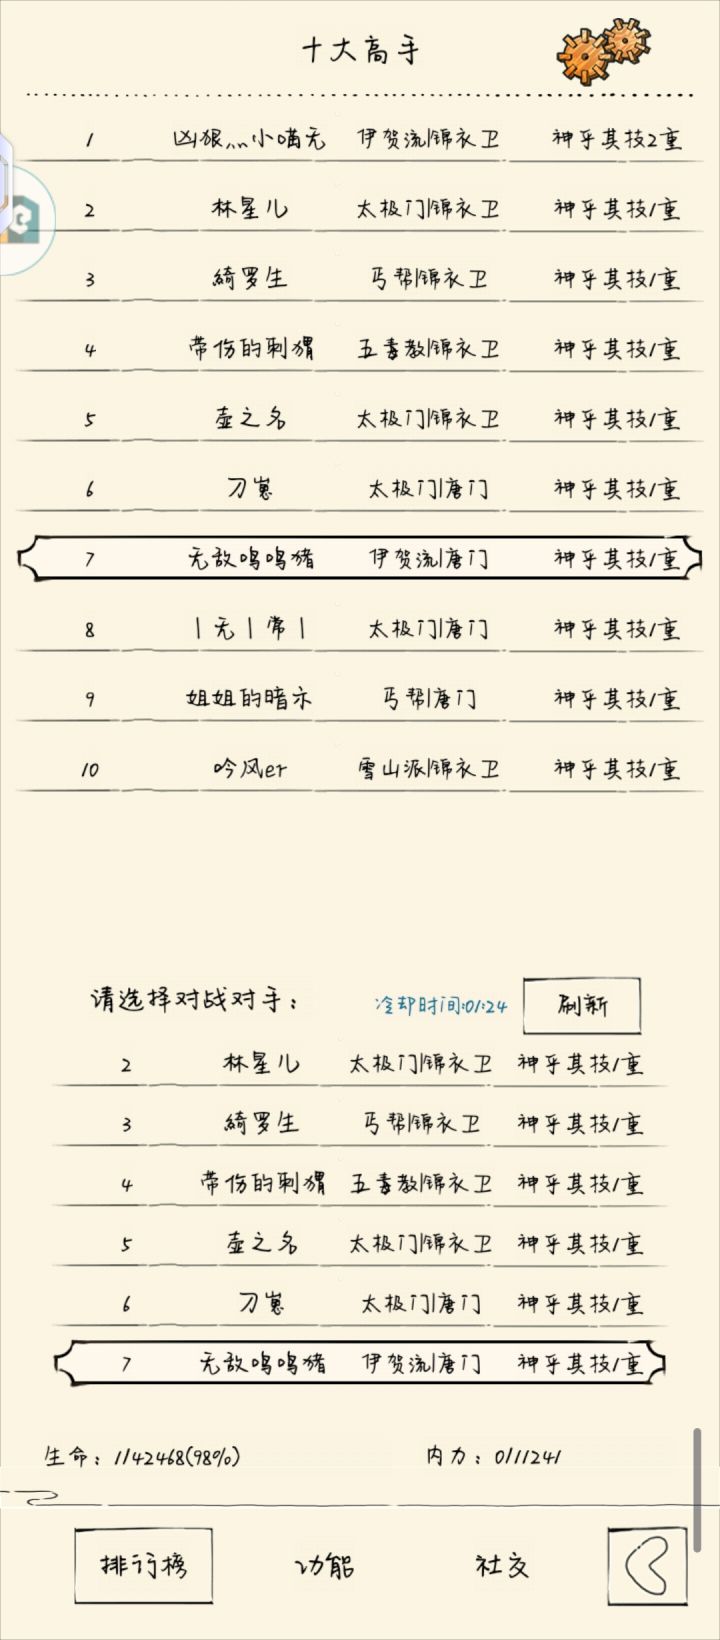 十大高手
1 凶狠灬小喵无 伊贺流|锦衣卫 神乎其技2重
2 林星儿 太极门|锦衣卫 神乎其技1重
3 绮罗生 丐帮|锦衣卫 神乎其技1重
4 带伤的刺猬 五毒教|锦衣卫 神乎其技1重
5 壶之名 太极门|锦衣卫 神乎其技1重
6 刀崽 太极门|唐门 神乎其技1重
7 无敌呜呜猪 伊贺流|唐门 神乎其技1重
8 丨无丨常丨 太极门|唐门 神乎其技1重
9 姐姐的暗示 丐帮|唐门 神乎其技1重
10 吟风er 雪山派|锦衣卫 神乎其技1重
请选择对战对手： 冷却时间:01:24 刷新
2 林星儿 太极门|锦衣卫 神乎其技1重
3 绮罗生 丐帮|锦衣卫 神乎其技1重
4 带伤的刺猬 五毒教|锦衣卫 神乎其技1重
5 壶之名 太极门|锦衣卫 神乎其技1重
6 刀崽 太极门|唐门 神乎其技1重
7 无敌呜呜猪 伊贺流|唐门 神乎其技1重
生命：1142468(98%) 内力：0/11241
排行榜 功能 社交